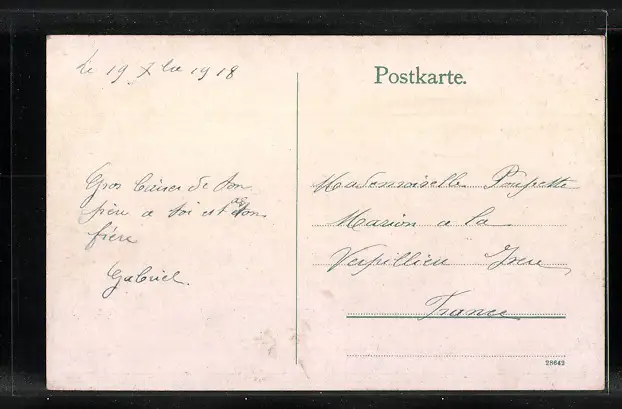 Le 19 Xbre 1918
Postkarte.
Gros baiser de ton
père a toi est a ton
frère
Gabriel.
Mademoiselle Poupette
Marion a la
Verpillieu Isere
France
28642